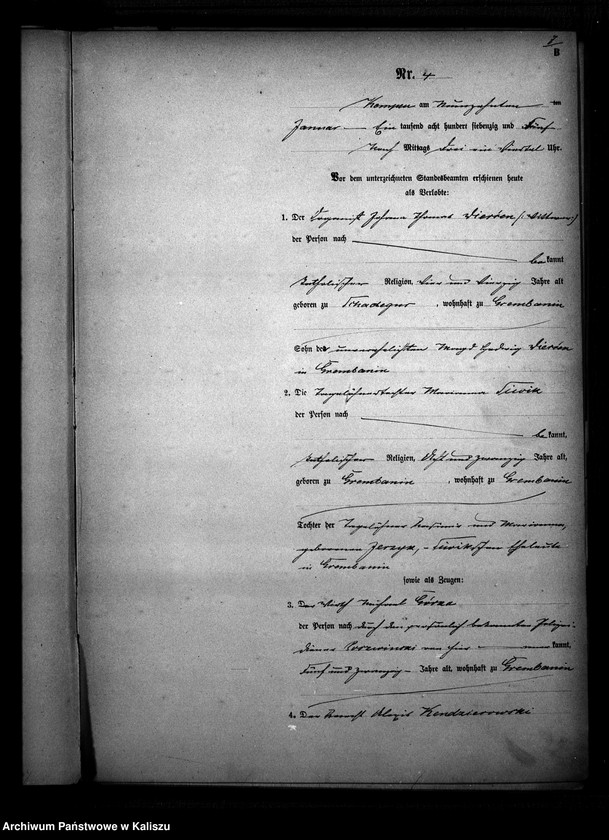 8
B
Nr. 4
Kempen am Neunzehnten ten
Januar Ein tausend acht hundert siebenzig und Fünf
Nach Mittags drei ein Viertel Uhr.
Vor dem unterzeichneten Standesbeamten erschienen heute
als Verlobte:
1. Der Johann Thomas
der Person nach
bekannt
katholischer Religion, vier und vierzig Jahre alt
geboren zu , wohnhaft zu Grembanin
Sohn der unverehelichten Magd Hedwig
in Grembanin
2. Die Tagelöhnertochter Marianna
der Person nach
bekannt,
katholischer Religion, Acht und zwanzig Jahre alt,
geboren zu Grembanin , wohnhaft zu Grembanin
Tochter der Tagelöhner und Marianna,
geborenen Eheleute
in Grembanin
sowie als Zeugen:
3. Der Wirth Michael Górza
der Person nach durch den persönlich bekannten Polizei-
diener von hier kannt,
Fünf und zwanzig Jahre alt, wohnhaft zu Grembanin
4. Der Knecht Alexis Kendzierowski
Archiwum Państwowe w Kaliszu